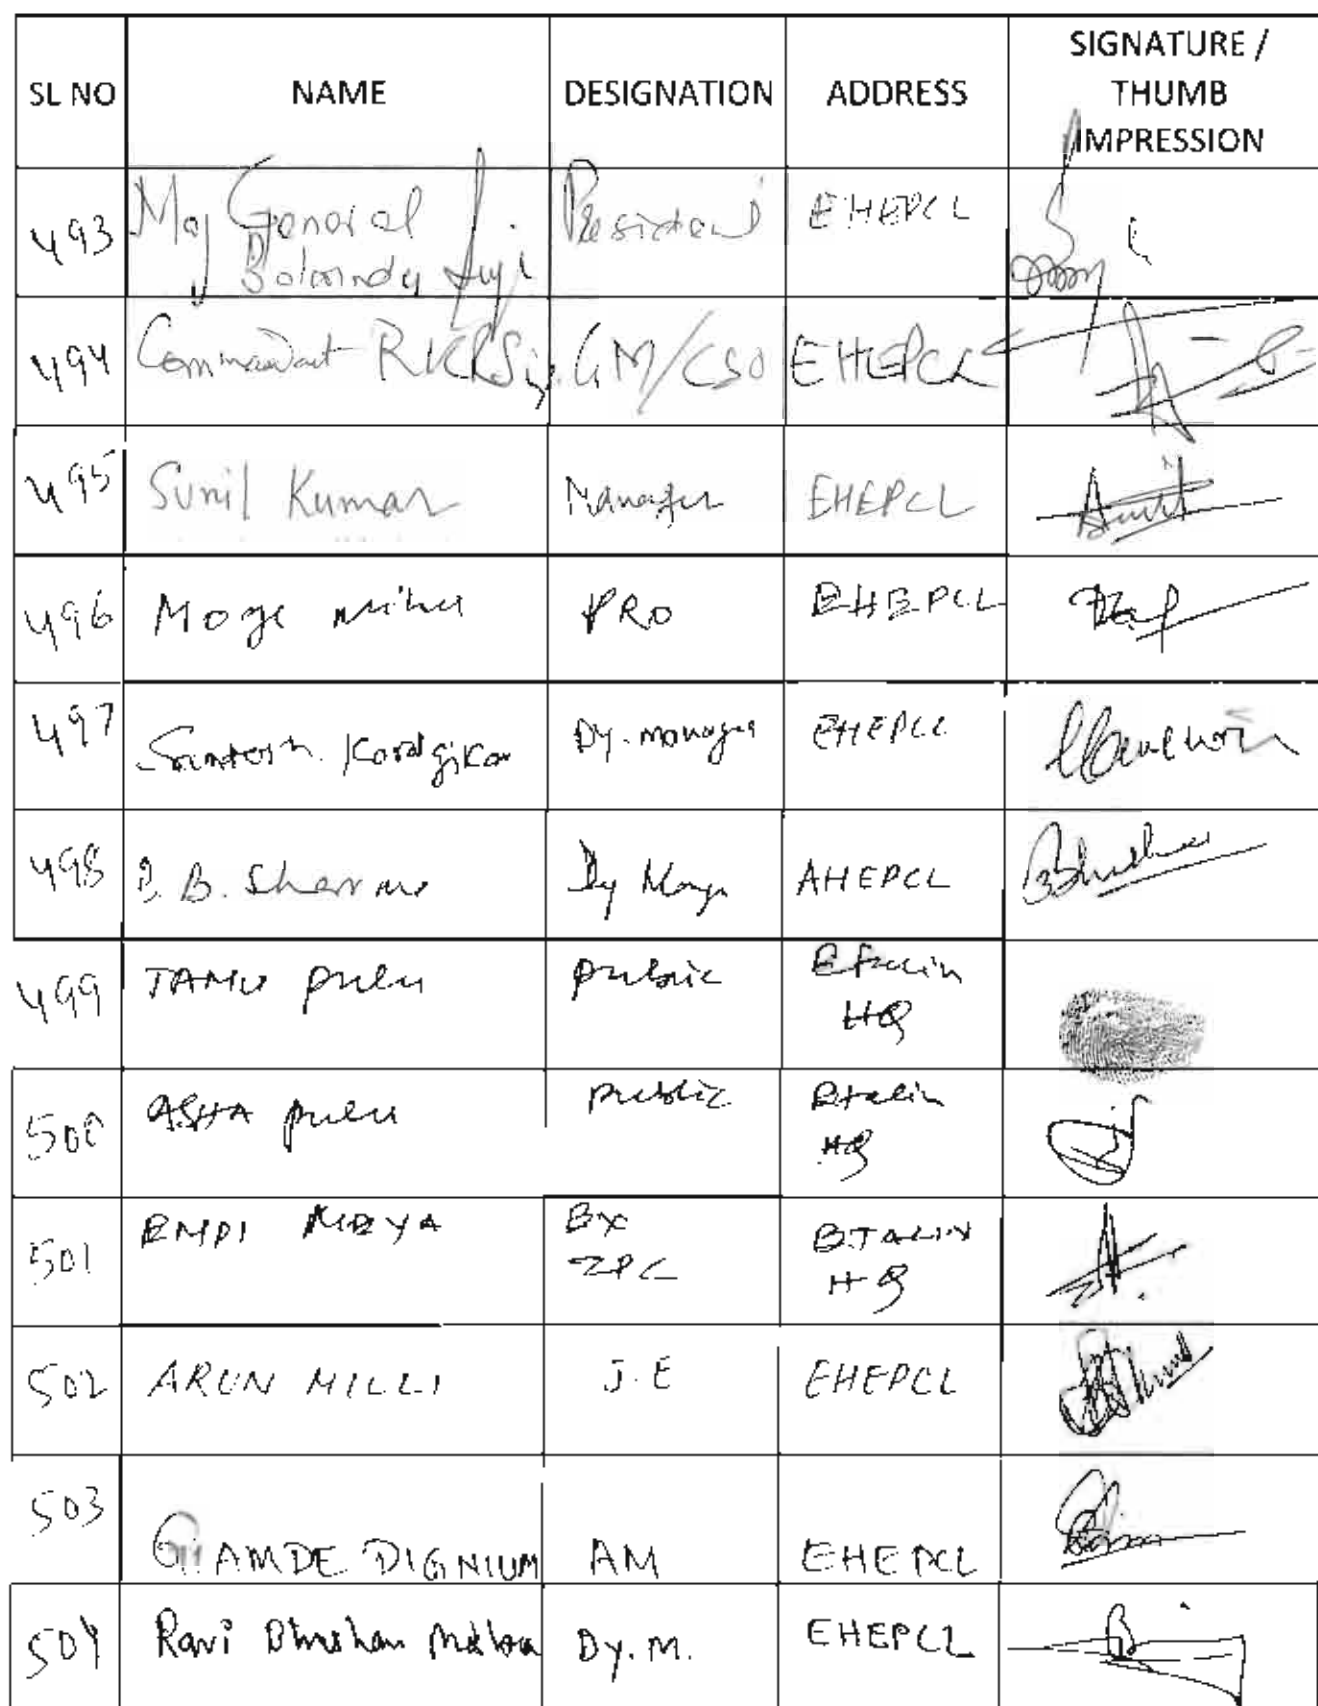 SL NO NAME DESIGNATION ADDRESS SIGNATURE / THUMB IMPRESSION
493 Maj General President EHEPCL
494 Commandant RKRSingh GM/CSO EHEPCL
495 Sunil Kumar Manager EHEPCL
496 Moge PRO EHEPCL
497 Santosh Koralgikar Dy. manager EHEPCL
498 B. B. Sharma Dy AHEPCL
499 TAMU pulu public Etalin HQ
500 ASHA pulu public Etalin HQ
501 EMPI MEYA EX ZPC ETALIN HQ
502 ARUN MILLI J.E EHEPCL
503 AMDE DIGNIUM AM EHEPCL
504 Ravi Bhushan Dy. M. EHEPCL